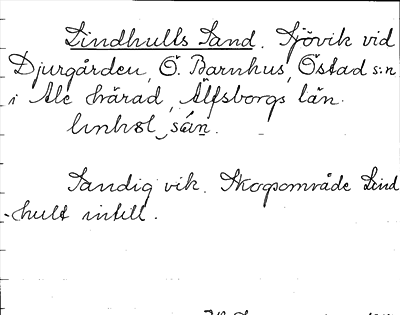 Lindhults Sand. Sjövik vid
Djurgården, Ö. Barnhus, Östad s:n
i Ale härad, Älfsborgs län.
lınhəl sán.
Sandig vik. Skogsområde Lind
-hult intill.